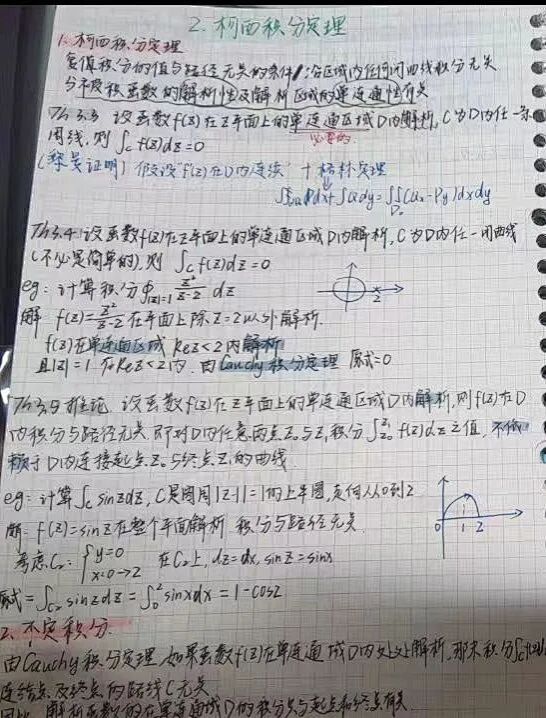 2. 柯西积分定理
1. 柯西积分定理
复值积分的值与路径无关的条件/沿区域内任何闭曲线积分无关
与不被积函数的解析性及解析区域的单连通性有关
Th 3.3 设函数f(z)在z平面上的单连通区域D内解析, C为D内任一条
周线, 则 ∫_C f(z)dz=0 必要的
(黎曼证明) 假设"f'(z)在D内连续" + 格林定理
Pdx+Qdy=∬(Qx-Py)dxdy
Th3.4 设函数f(z)在z平面上的单连通区域D内解析, C为D内任一闭曲线
(不必是简单的), 则 ∫_C f(z)dz=0
eg: 计算积分∮_{|z|=1} z²/(z-2) dz
2
解 f(z)=z²/(z-2) 在平面上除z=2以外解析.
f(z)在单连通区域 Rez<2内解析
且|z|=1 在Rez<2内. 由Cauchy积分定理 原式=0
Th3.5 推论 设函数f(z)在z平面上的单连通区域D内解析, 则f(z)在D
内积分与路径无关. 即对D内任意两点z₀与z₁积分∫_{z₀}^{z₁} f(z)dz之值, 不依
赖于D内连接起点z₀与终点z₁的曲线
eg: 计算∫_C sinzdz, C是圆周|z-1|=1的上半圆, 走向从0到2
解: f(z)=sinz在整个平面解析 积分与路径无关.
0 1 2
考虑C₂: { y=0 x:0→2 在C₂上, dz=dx, sinz=sinx
原式=∫_{C₂} sinzdz=∫₀²sinxdx=1-cos2
2. 不定积分.
由Cauchy积分定理, 如果函数f(z)在单连通域D内处处解析, 那末积分∫_C f(z)d
连结起点及终点的路线C无关
解析函数的在单连通域D内的积分只与起点和终点有关